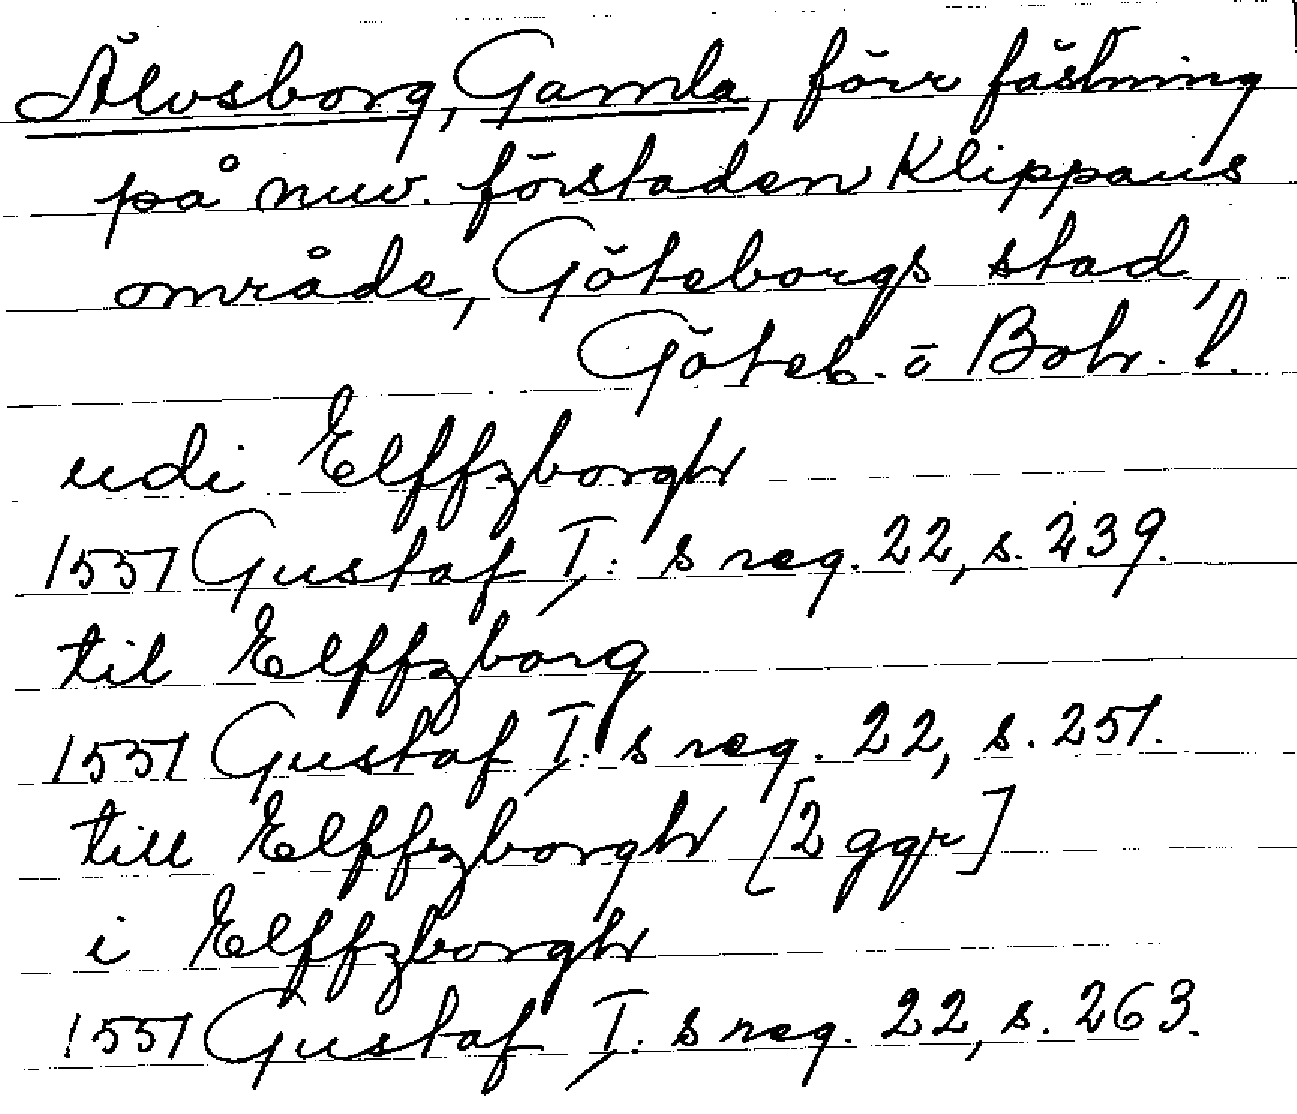 Älvsborg, Gamla, förr fästning
på nuv. förstaden Klippans
område, Göteborgs stad,
Göteb. o Boh. l.
udi Elffzborgh
1551 Gustaf I: s reg. 22, s. 239.
til Elffzborg
1551 Gustaf I: s reg. 22, s. 251.
till Elffzborgh [2 ggr]
i Elffzborgh
1551 Gustaf I: s reg. 22, s. 263.